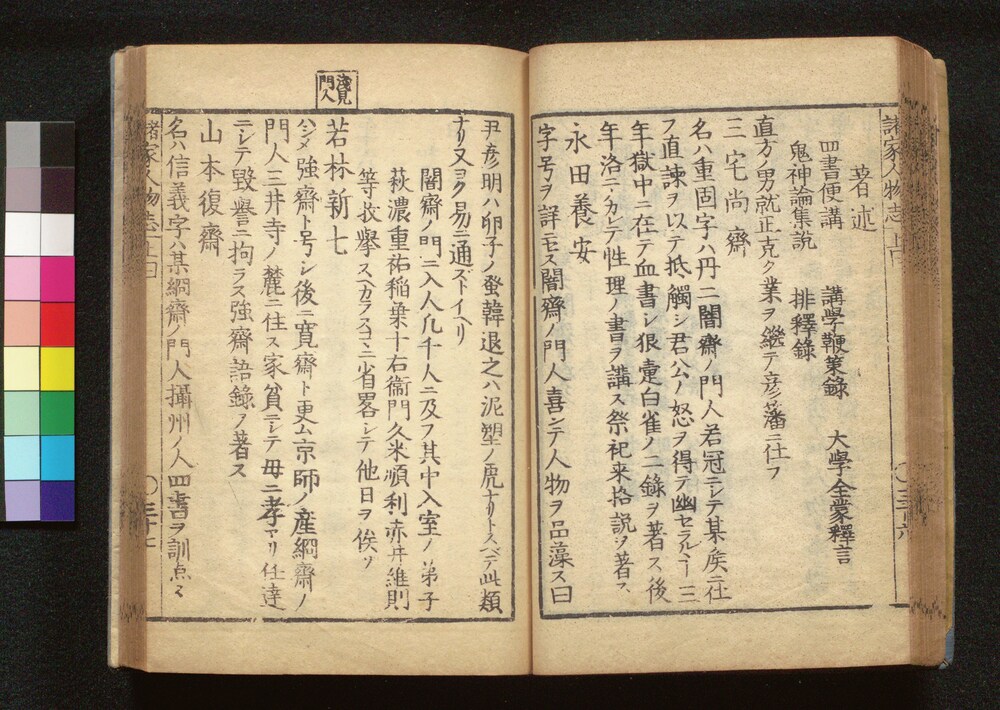 諸家人物志 上
著述
四書便講 講學鞭策録 大學全蒙釋言
鬼神論集説 排釋録
直方ノ男就正克ク業ヲ継テ彦藩ニ仕フ
三宅尚齋
名ハ重固字ハ丹二闇齋ノ門人若冠ニシテ某矦ニ仕
フ直諫ヲ以テ抵觸シ君公ノ怒ヲ得テ幽セラルヽヿ三
年獄中ニ在テ血書シ狼疐白雀ノ二録ヲ著ス後
年洛ニカレテ性理ノ書ヲ講ス祭祀来格説ヲ著ス
永田養安
字号ヲ詳ニモス闇齋ノ門人喜ンテ人物ヲ品藻ス曰
尹彦明ハ卵子ノ蚕韓退之ハ泥塑ノ虎ナリトスベテ此類
ナリ又ヨク易ニ通ズトイヘリ
闇齋ノ門ニ入人凡千人ニ及フ其中入室ノ弟子
萩濃重祐稲葉十右衞門久米順利赤井維則
等枚擧スヘカラスコヽニ省畧シテ他日ヲ俟ツ
若林新七
ハシメ強齋ト号シ後ニ寛齋ト更ム京師ノ産絅齋ノ
門人三井寺ノ麓ニ住ス家貧ニシテ母ニ孝アリ仕達
ニシテ毀譽ニ拘ラス強齋語録ヲ著ス
山本復齋
名ハ信義字ハ某絅齋ノ門人攝州ノ人四書ヲ訓点ス
門人
諸家人物志 上
三十七